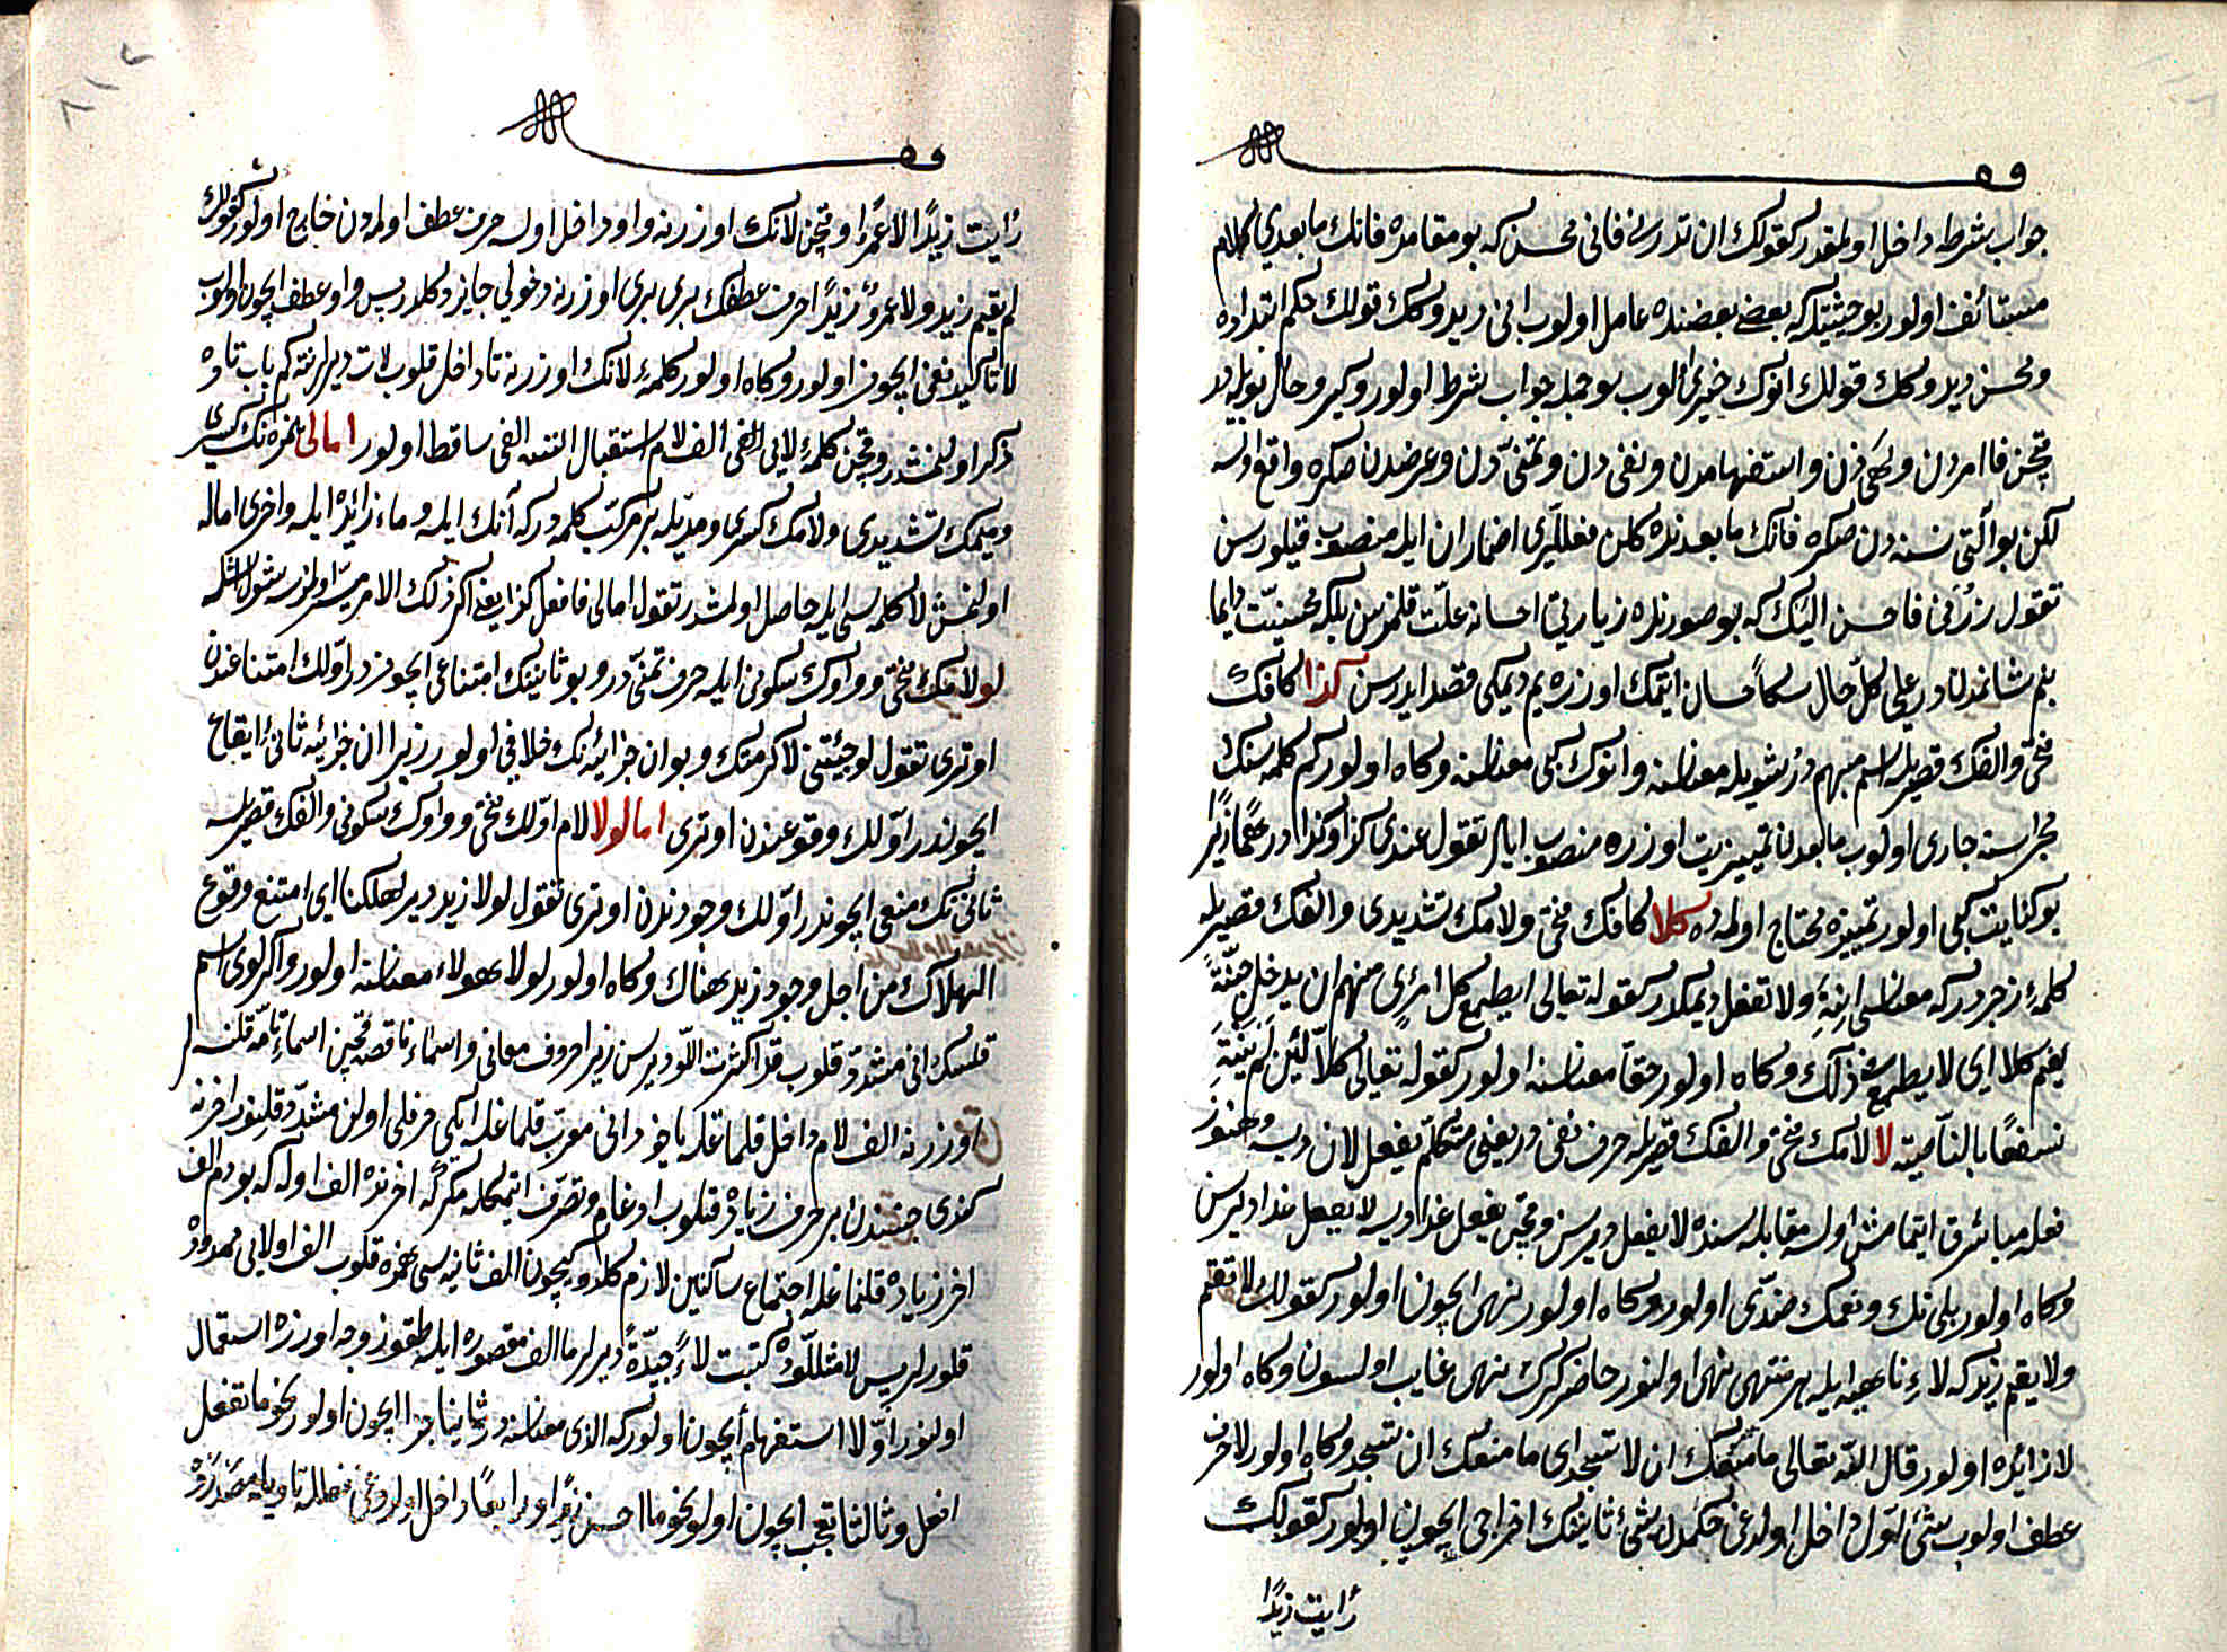 جواب شرطه داخل اولمقدر كقولك ان تدرسنى فانى محسن كه بو مقامده فانك مابعدى كلام
مستأنف اولور بو حيثيتله كه بعضى بعضنده عامل اولوب انى ديدوكك قولك حكم ابتداده
ومحسن ديدوكك قولك انوك خبرى الوب بو جمله جواب شرط اولور وكير وحال بويله در
قچن فا امردن ونهى دن واستفهامدن ونفى دن وتمنى دن وعرضدن صكره واقع اولسه
لكن بو آلتى نسنه دن صكره فانك مابعدنده كلن فعللرى اضمار ان ايله منصوب قيلورسن
تقول زرنى فاحسن اليك كه بو صورتده زيارتى احسانه علت قلمزسن بلكه محسنيت دايما
بنم شانمدندر على كل حال سكا احسان ايتمك اوزره يم ديمكى قصد ايدرسن كذا كافك
فتحى والفك قصريله اسم مبهم در شويله معناسنه وانوك كبى معناسنه وكاه اولور كم كلمه سنك
مجراسنه جارى اولوب مابعدن تمييزيت اوزره منصوب ايلر تقول عندى كذا وكذا درهما زيرا
بو كنايت كبى اولور تمييزه محتاج اولمه ده كلا كافك فتحى ولامك تشديدى والفك قصريله
كلمهٔ زجر دركه معناسى انته ولا تفعل ديمكدر كقوله تعالى ايطمع كل امرئ منهم ان يدخل جنة
نعيم كلا اى لا يطمع فى ذلك وكاه اولور حقا معناسنه اولور كقوله تعالى كلا لئن لم ينته
لنسفعا بالناصية لا لامك فتحى والفك قصريله حرف نفى در يعنى متكلم يفعل الان ديسه وهنوز
فعله مباشرت ايتمامش اولسه مقابله سنده لا يفعل ديرسن وقچن يفعل غدا ديسه لا يفعل غدا ديرسن
وكاه اولور بلى نك ونعمك ضدى اولور وكاه اولور نهى ايچون اولور كقولك لا تقم
ولا يقم زيد كه لاء ناهيه ايله هر منتهى نهى اولنور حاضر كرك نهى غايب اولسون وكاه اولور
لا زائده اولور قال الله تعالى ما منعك ان لا تسجد اى ما منعك ان تسجد وكاه اولور لا حرف
عطف اولوب شئ اول داخل اولدغى حكمدن شئ ثانينك اخراجى ايچون اولور كقولك
رأيت زيدا
رأيت زيدا لا عمرا وقچن لانك اوزرنه واو داخل اولسه حرف عطف اولمه دن خارج اولور كقولك
لم يقم زيد ولا عمرو زيرا حرف عطفك برى برى اوزرنه دخولى جايز دكلدر پس واو عطف ايچون اولوب
لا تأكيد نفى ايچون اولور وكاه اولور كلمهٔ لانك اوزرنه تا داخل قلوب لات ديرلر نته كم باب تاده
ذكر اولنمشدر وقچن كلمهٔ لايى الفى الف لام استقبال اتسه الفى ساقط اولور امالى همزه نك كسرى
وميمك تشديدى ولامك كسرى ومديله بر مركب كلمه دركه آنك ايله وماء زائده ايله واخرى اماله
اولنمش لا كلمه سى ايله حاصل اولمشدر تقول امالى فافعل كذا يعنى اكر ذلك الامر ميسر اولمزسه شول ايشله
لو لامك فتحى وواوك سكونى ايله حرف تمنى در وبو ثانينك امتناعى ايچوندر اولك امتناعندن
اوترى تقول لو جئتنى لاكرمتك وبو ان جزائيه نك خلافى اولور زيرا ان جزائيه ثانى ايقاع
ايچوندر اولك وقوعندن اوترى اما لولا لام اولك فتحى وواوك سكونى والفك قصريله
ثانى نك منعى ايچوندر اولك وجودندن اوترى تقول لولا زيد دير لهلكنا اى امتنع وقوع
الهلاك من اجل وجود زيد هناك وكاه اولور لولا هولاء معناسنه اولور واكر لوى اسم
قلسك انى مشدد قلوب قد اكثرت اللو ديرسن زيرا حروف معانى واسماء ناقصه قچن اسماء تامه قلنسه لر
اوزرنه الف لام داخل قلمغله ياخود انى معرب قلمغله ايكى حرفلى اولن مشدد قلنور اخرنه
كندى جنسندن بر حرف زياده قلوب ادغام وتصرف ايتمكله مكر كه اخرنده الف اوله كه بودم الف
اخر زياده قلنماغله اجتماع ساكنين لازم كلدوكيچون الف ثانيه سى همزه قلوب الف اولايى ممدود
قلورلر پس لا مثللوده كتبت لاء جيدة ديرلر ما الف مقصوره ايله طقوز وجه اوزره استعمال
اولنور اولا استفهام ايچون اولور كه الذى معناسنه در ثانيا جزا ايچون اولور نحو ما تفعل
افعل وثالثا تعجب ايچون اولور نحو ما احسن زيدا ورابعا داخل اولدوغى فعلله تأويل مصدر ده